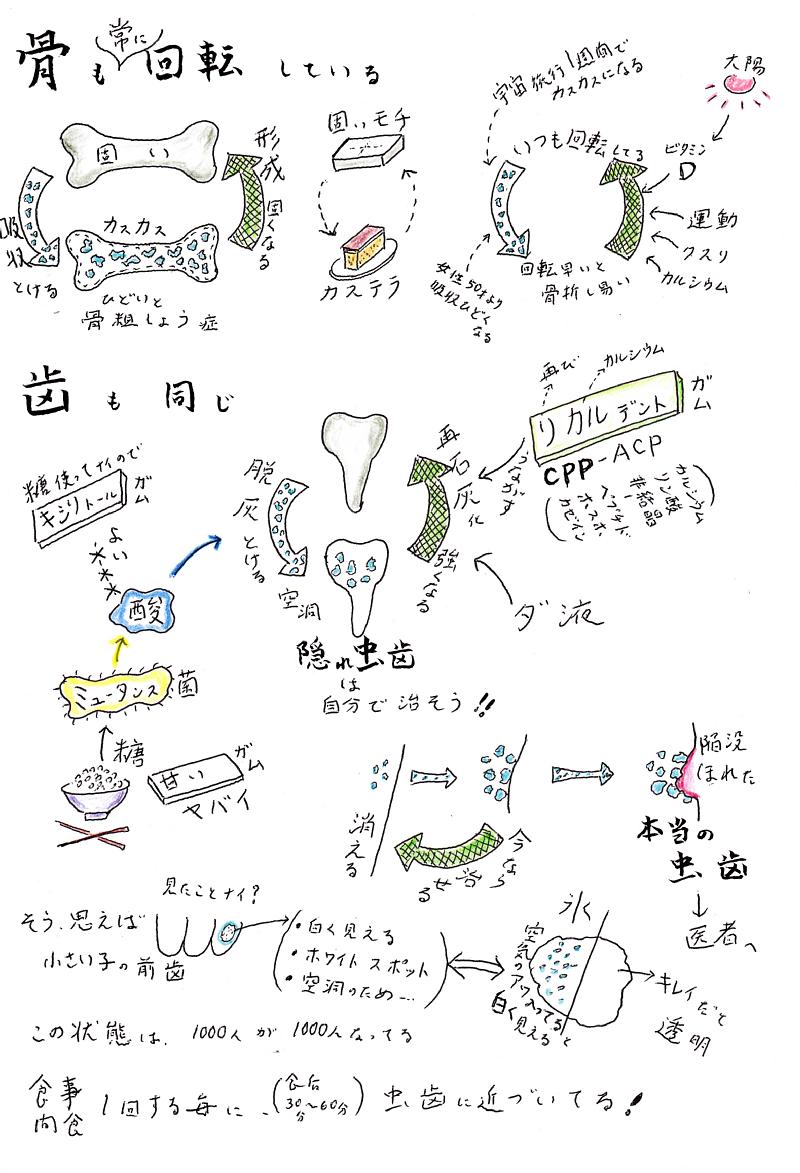 骨も常に回転している
固い
カスカス
吸収
とける
形成
固くなる
ひどいと
骨粗しょう症
固いモチ
カステラ
宇宙旅行1週間で
カスカスになる
いつも回転してる
太陽
ビタミン
D
運動
クスリ
カルシウム
回転早いと
骨折し易い
女性50才より
吸収ひどく
なる
歯も同じ
糖使ってナイので
キシリトール
ガム
よい
酸
ミュータンス菌
糖
甘い
ガム
ヤバイ
脱灰
とける
空洞
再石灰化
強くなる
隠れ虫歯
は
自分で治そう!!
再び
カルシウム
リカルデント
ガム
CPP-ACP
うながす
カルシウム
リン酸
非結晶
ペプチド
ホスホ
カゼイン
ダ液
消える
今なら
治せる
陥没
ほれた
本当の
虫歯
医者へ
見たことナイ?
そう、思えば
小さい子の前歯
・白く見える
・ホワイトスポット
・空洞のため…
氷
空気のアワ入ってると
白く見える
キレイだと
透明
この状態は、1000人が1000人なってる
食事
間食
1回する毎に、
(食后
30分~60分)
虫歯に近づいてる!